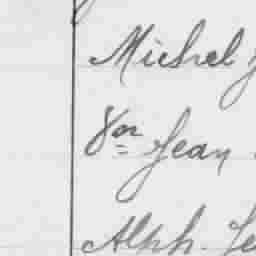 Michel
8or Jean
Alph. Je